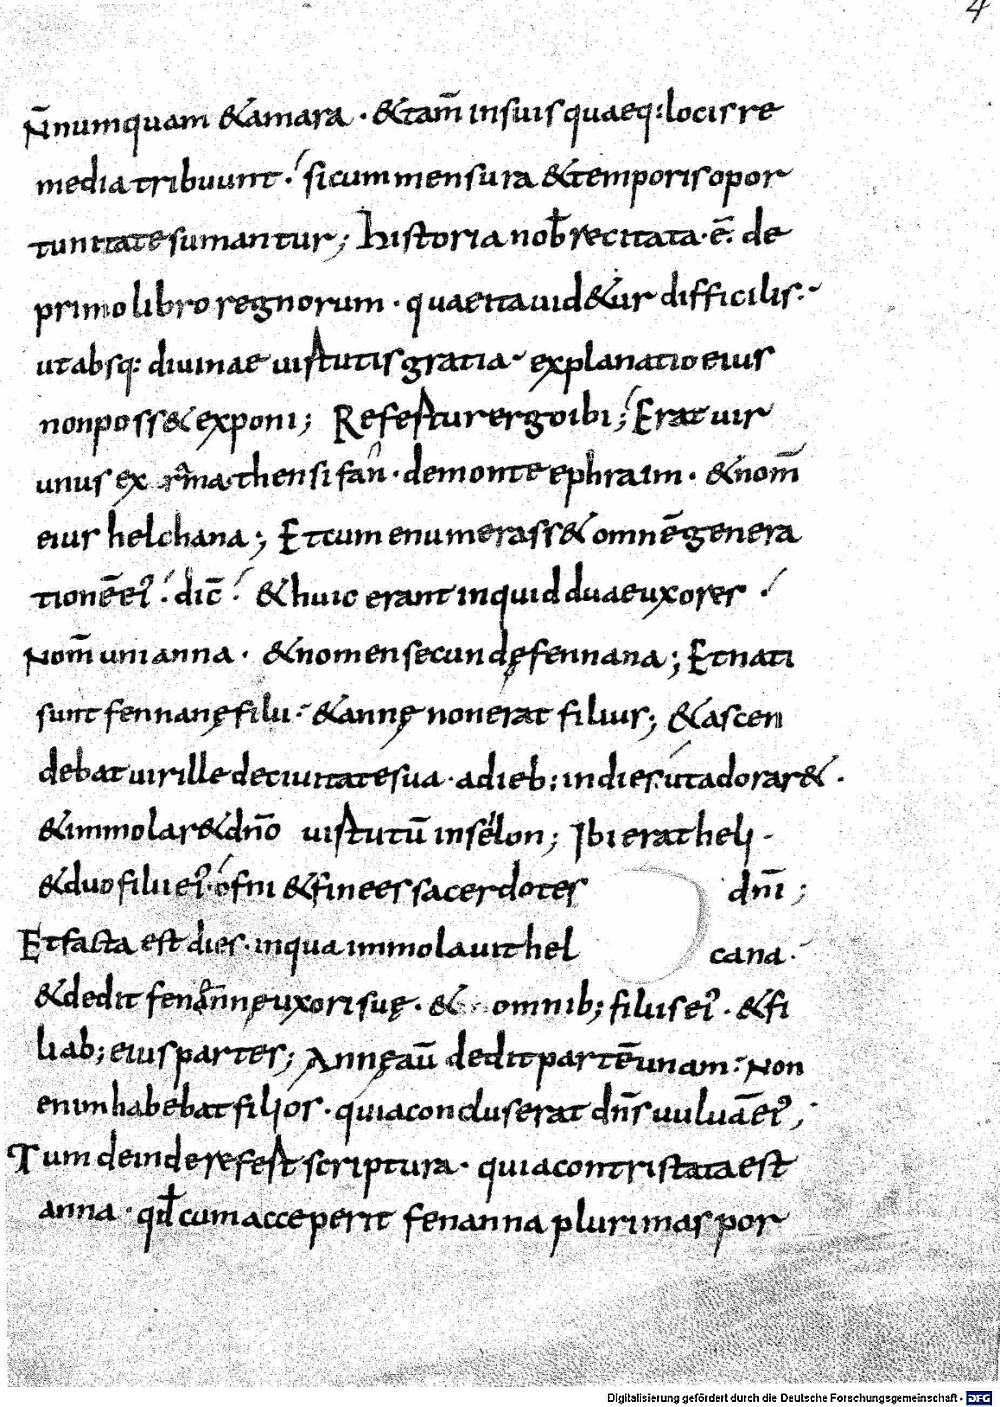 4
N̄numquam &amara · &tam̄ insuis quaeq: locis re
media tribuunt · sicum mensura &temporis opor
tunitate sumantur; historia nob̄ recitata · ē · de
primo libro regnorum · quae ita uid&ur difficilis ·
ut absq: diuinae uirtutis gratia explanatio eius
non poss& exponi; Refertur ergo ibi; Erat uir
unus ex armathensi fan̄ · de monte ephraim · &nom̄
eius helchana; Et cum enumerass& omnē genera
tionē ei' · dic̄ · &huic erant inquid duae uxores
Nom̄ uni anna · &nomen secundę fennana; Et nati
sunt fennanę filii · &annę non erat filius; &ascen
debat uir ille de ciuitate sua · a dieb; in dies · ut adorar& ·
&immolar& dn̄o uirtutū in selon; Ibi erat heli ·
&duo filii ei' · ofni &finees sacerdotes dn̄i ;
Et facta est dies · in qua immolauit hel cana ·
&dedit fenannę uxori suę · & omnib; filiis ei' · &fi
liab; eius partes; Annę aū dedit partē unam · Non
enim habebat filios · quia concluserat dn̄s uuluā ei' ;
Tum deinde refert scriptura · quia contristata est
anna · qd̄ cum acceperit fenanna plurimas por
Digitalisierung gefördert durch die Deutsche Forschungsgemeinschaft - DFG